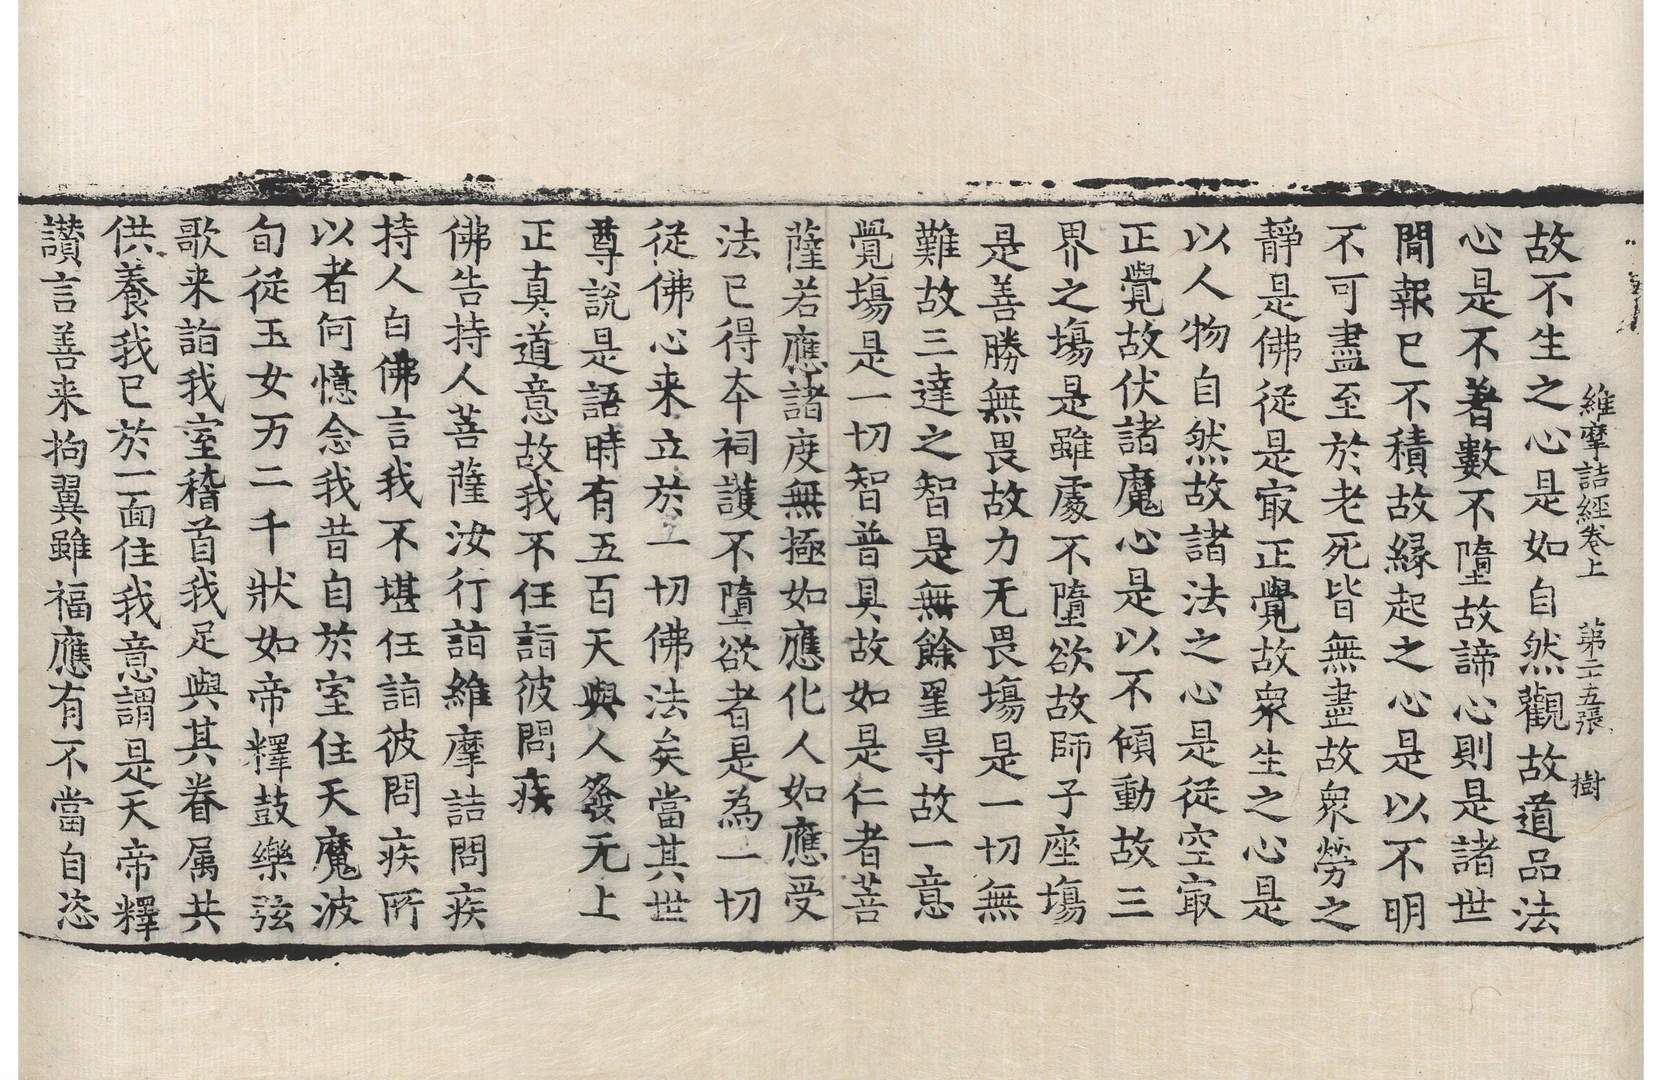 維摩詰經卷上 第二十五張 樹
故不生之心是如自然觀故道品法
心是不著數不墮故諦心則是諸世
間報已不積故緣起之心是以不明
不可盡至於老死皆無盡故衆勞之
靜是佛從是㝡正覺故衆生之心是
以人物自然故諸法之心是從空㝡
正覺故伏諸魔心是以不傾動故三
界之塲是雖處不墮欲故師子座塲
是善勝無畏故力无畏塲是一切無
難故三達之智是無餘罣㝵故一意
覺塲是一切智普具故如是仁者菩
薩若應諸度無極如應化人如應受
法已得夲祠護不墮欲者是為一切
從佛心来立於一切佛法矣當其世
尊説是語時有五百天與人發无上
正真道意故我不任詣彼問疾
佛告持人菩薩汝行詣維摩詰問疾
持人白佛言我不堪任詣彼問疾所
以者何憶念我昔自於室住天魔波
旬從玉女万二千狀如帝釋鼓樂弦
歌来詣我室稽首我足與其眷属共
供養我已於一面住我意謂是天帝釋
讃言善来拘翼雖福應有不當自恣